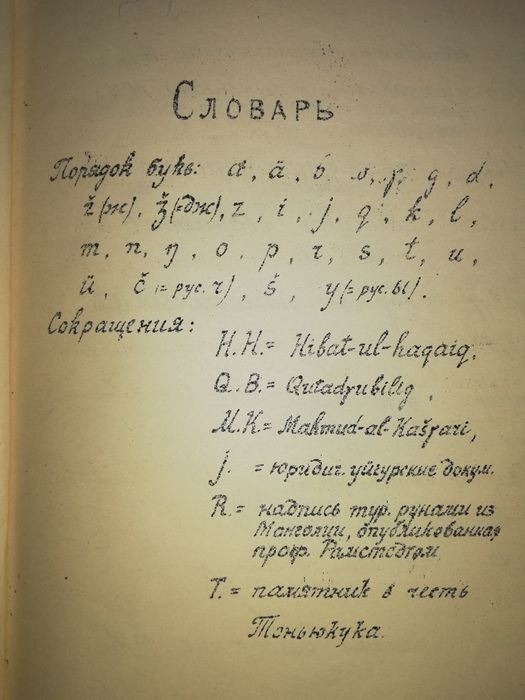 Словарь
Порядок букв: a, ä, b, v, ƿ, g, d,
ž (ж), ǯ (=дж), z, i, j, q, k, l,
m, n, ŋ, o, p, r, s, t, u,
ü, č (= рус. ч), š, y (= рус. ы).
Сокращения:
H.H. = Hibat-ul-haqaiq,
Q.B. = Qutadƿubilig,
M.K = Mahmud-al-Kašƿari,
j. = юридич. уйгурские докум.
R. = надпись тур. рунами из
Монголии, опубликованная
проф. Рамстедтом
T. = памятник в честь
Тоньюкука.